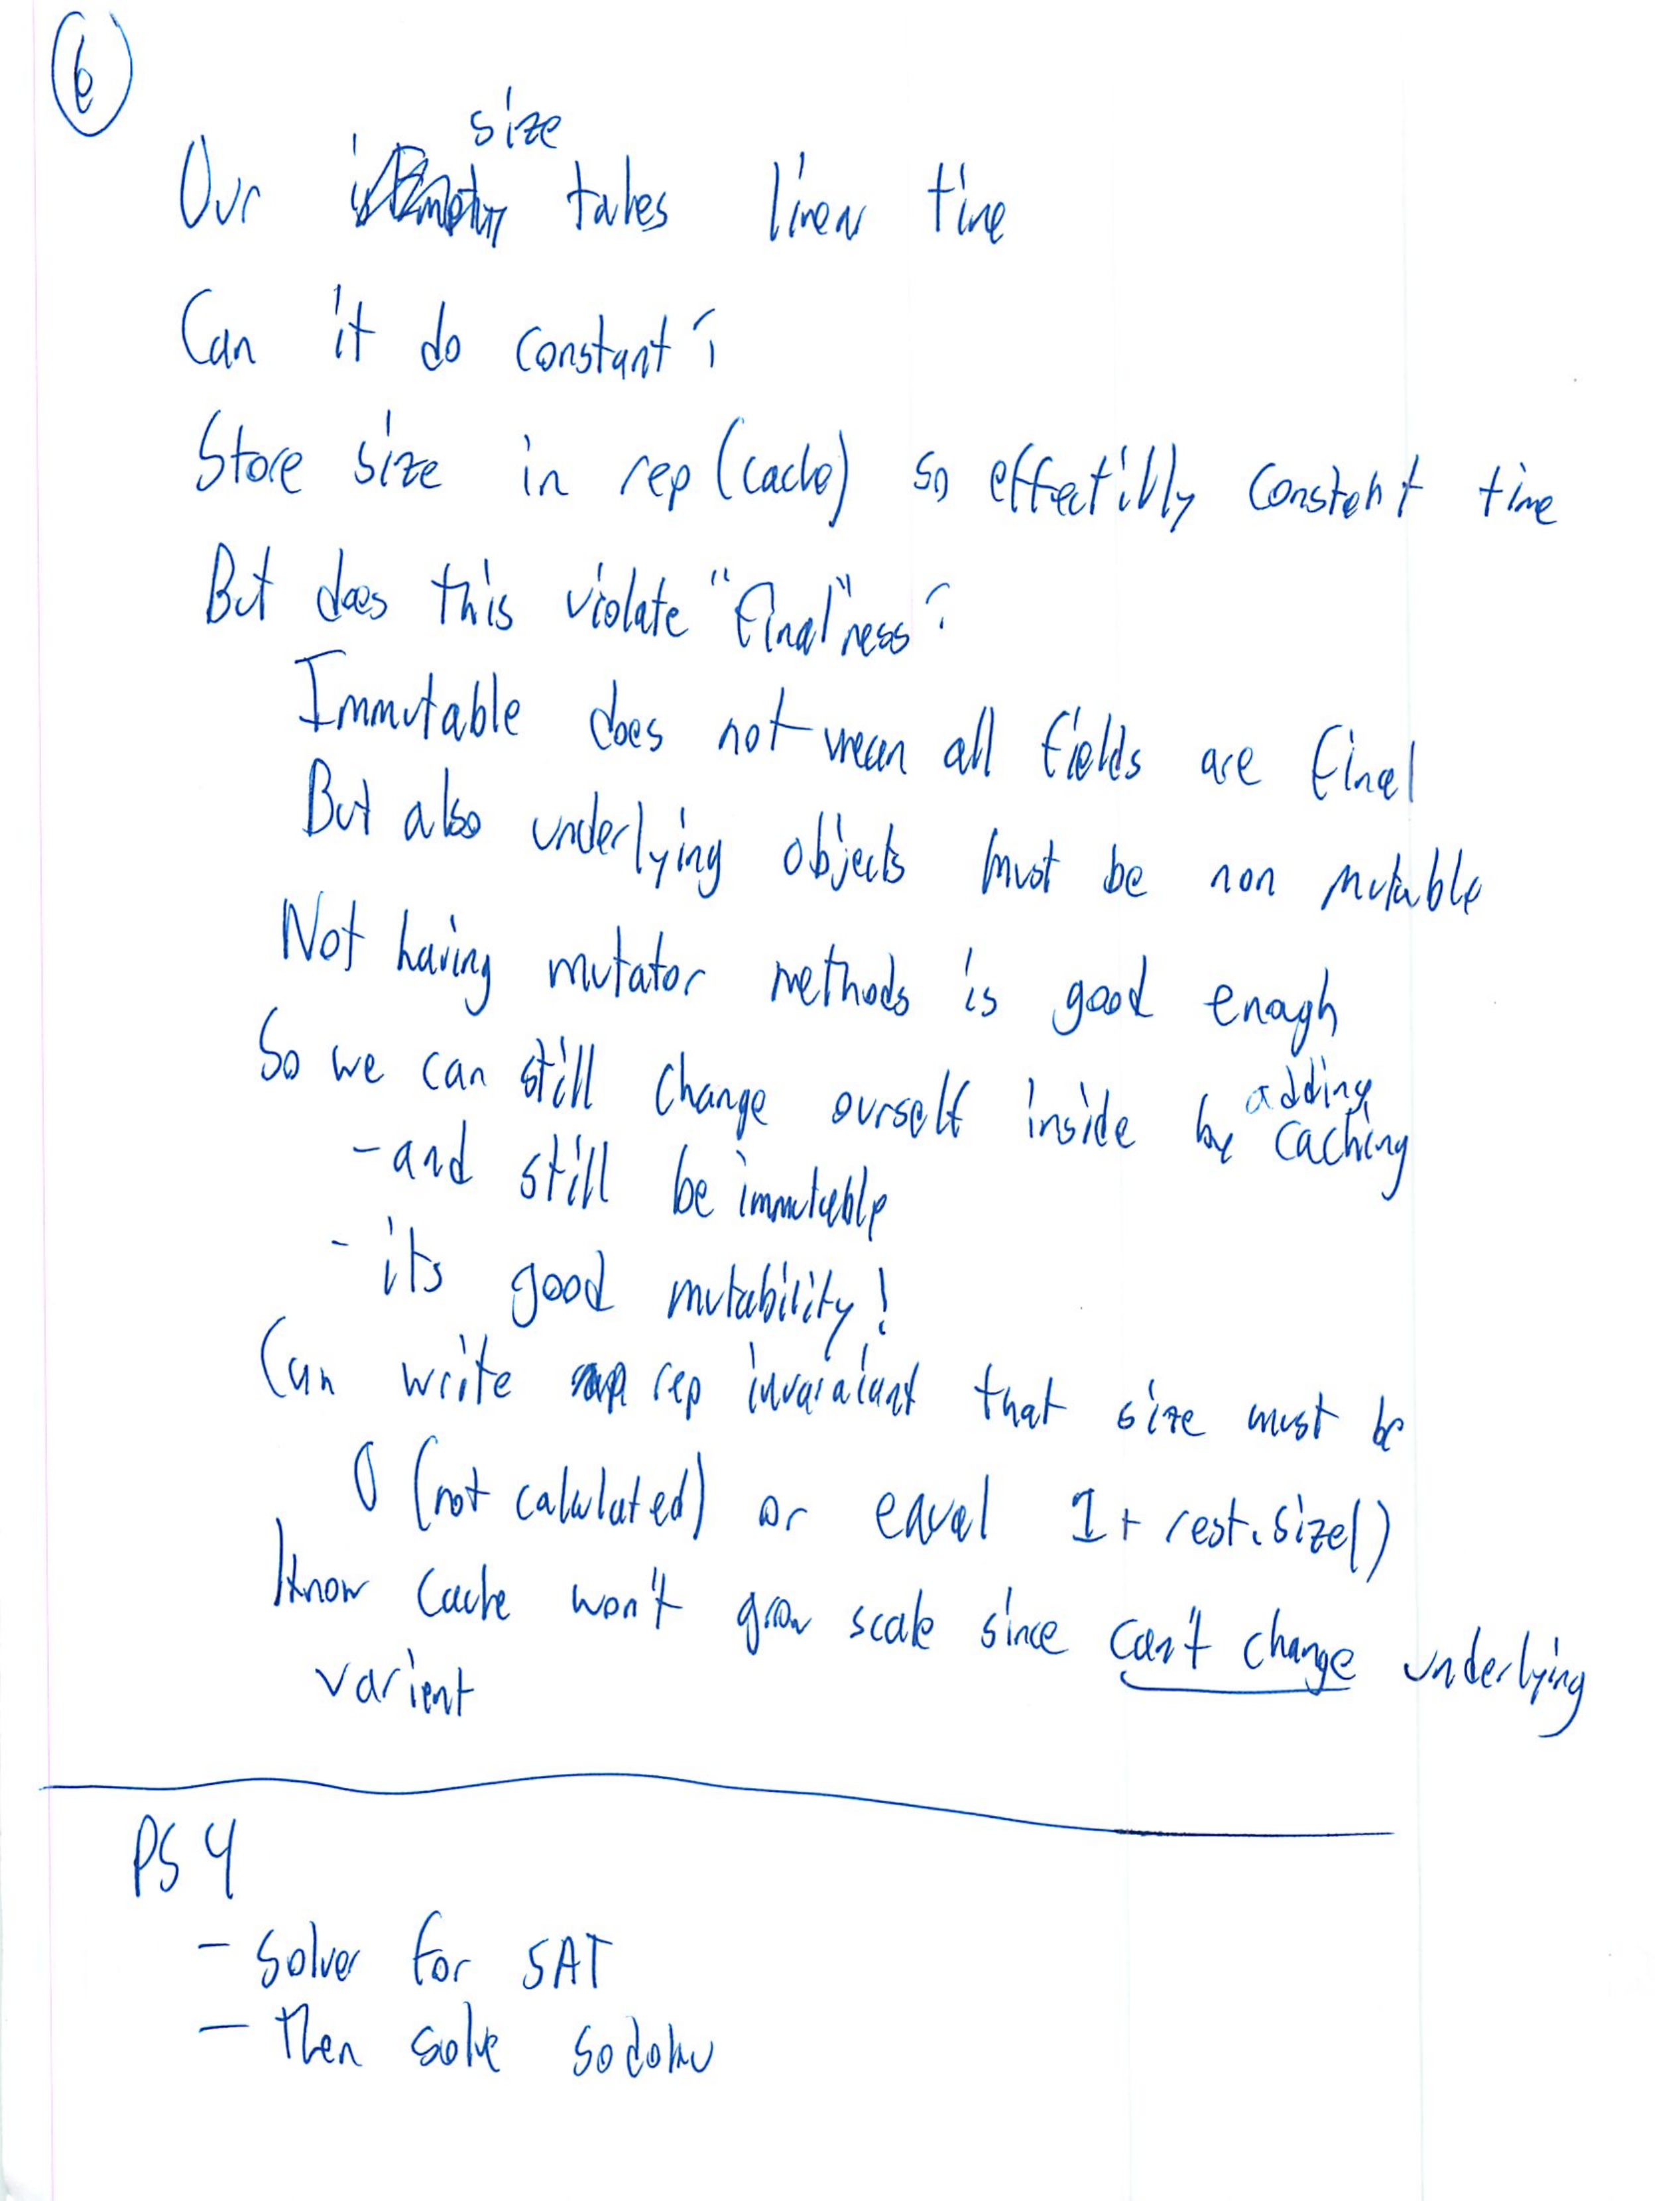 6
Our size takes linear time
Can it do constant?
Store size in rep (cache) so effectivly constant time
But does this violate "final"ness?
Immutable does not mean all fields are final
But also underlying objects must be non mutable
Not having mutator methods is good enough
So we can still change ourself inside by adding caching
- and still be immutable
- its good mutability!
Can write rep invaraiant that size must be
0 (not calculated) or equal 1 + rest.size()
Know cache won't grow stale since can't change underlying
varient
PS 4
- Solver for SAT
- Then solve sodoku